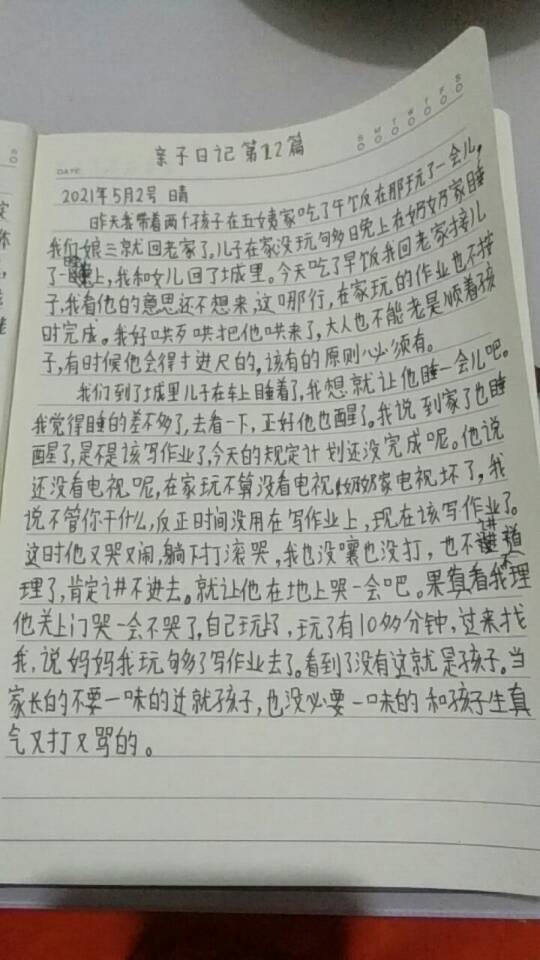 S M T W T F S
亲子日记第12篇
DATE
2021年5月2号 晴
昨天我带着两个孩子在五姨家吃了午饭在那玩了一会儿,
我们娘三就回老家了,儿子在家没玩够多晚上在奶奶家睡
了一晚上,我和女儿回了城里。今天吃了早饭我回老家接儿
子,我看他的意思还不想来,这哪行,在家玩的作业也不按
时完成。我好哄歹哄把他哄来了,大人也不能老是顺着孩
子,有时候他会得寸进尺的,该有的原则必须有。
我们到了城里儿子在车上睡着了,我想就让他睡一会儿吧。
我觉得睡的差不多了,去看一下,正好他也醒了。我说到家了也睡
醒了,是不是该写作业了,今天的规定计划还没完成呢。他说
还没看电视呢,在家玩不算没看电视,奶奶家电视坏了,我
说不管你干什么,反正时间没用在写作业上,现在该写作业了。
这时他又哭又闹,躺下打滚哭,我也没嚷也没打,也不讲道
理了,肯定讲不进去。就让他在地上哭一会吧。果真看我不理
他关上门哭一会不哭了,自己玩上了,玩了有10多分钟,过来找
我,说妈妈我玩够了写作业去了。看到了没有这就是孩子。当
家长的不要一味的迁就孩子,也没必要一味的和孩子生真
气又打又骂的。